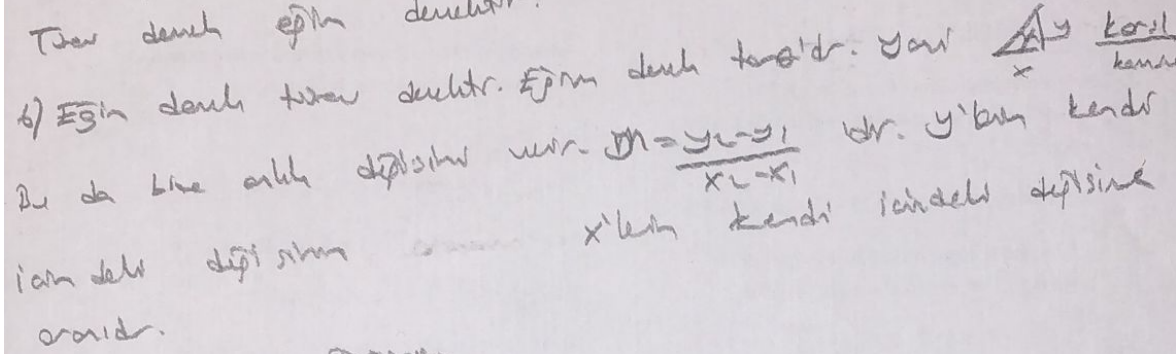 Türev demek eğim demektir.
b) Eğim demek türev demektir. Eğim demek tanθ'dır. Yani x y karşı / komşu
Bu da bize anlık değişimi verir. m = y₂-y₁ / x₂-x₁ dir. y'lerin kendi
içindeki değişimin x'lerin kendi içindeki değişime
oranıdır.